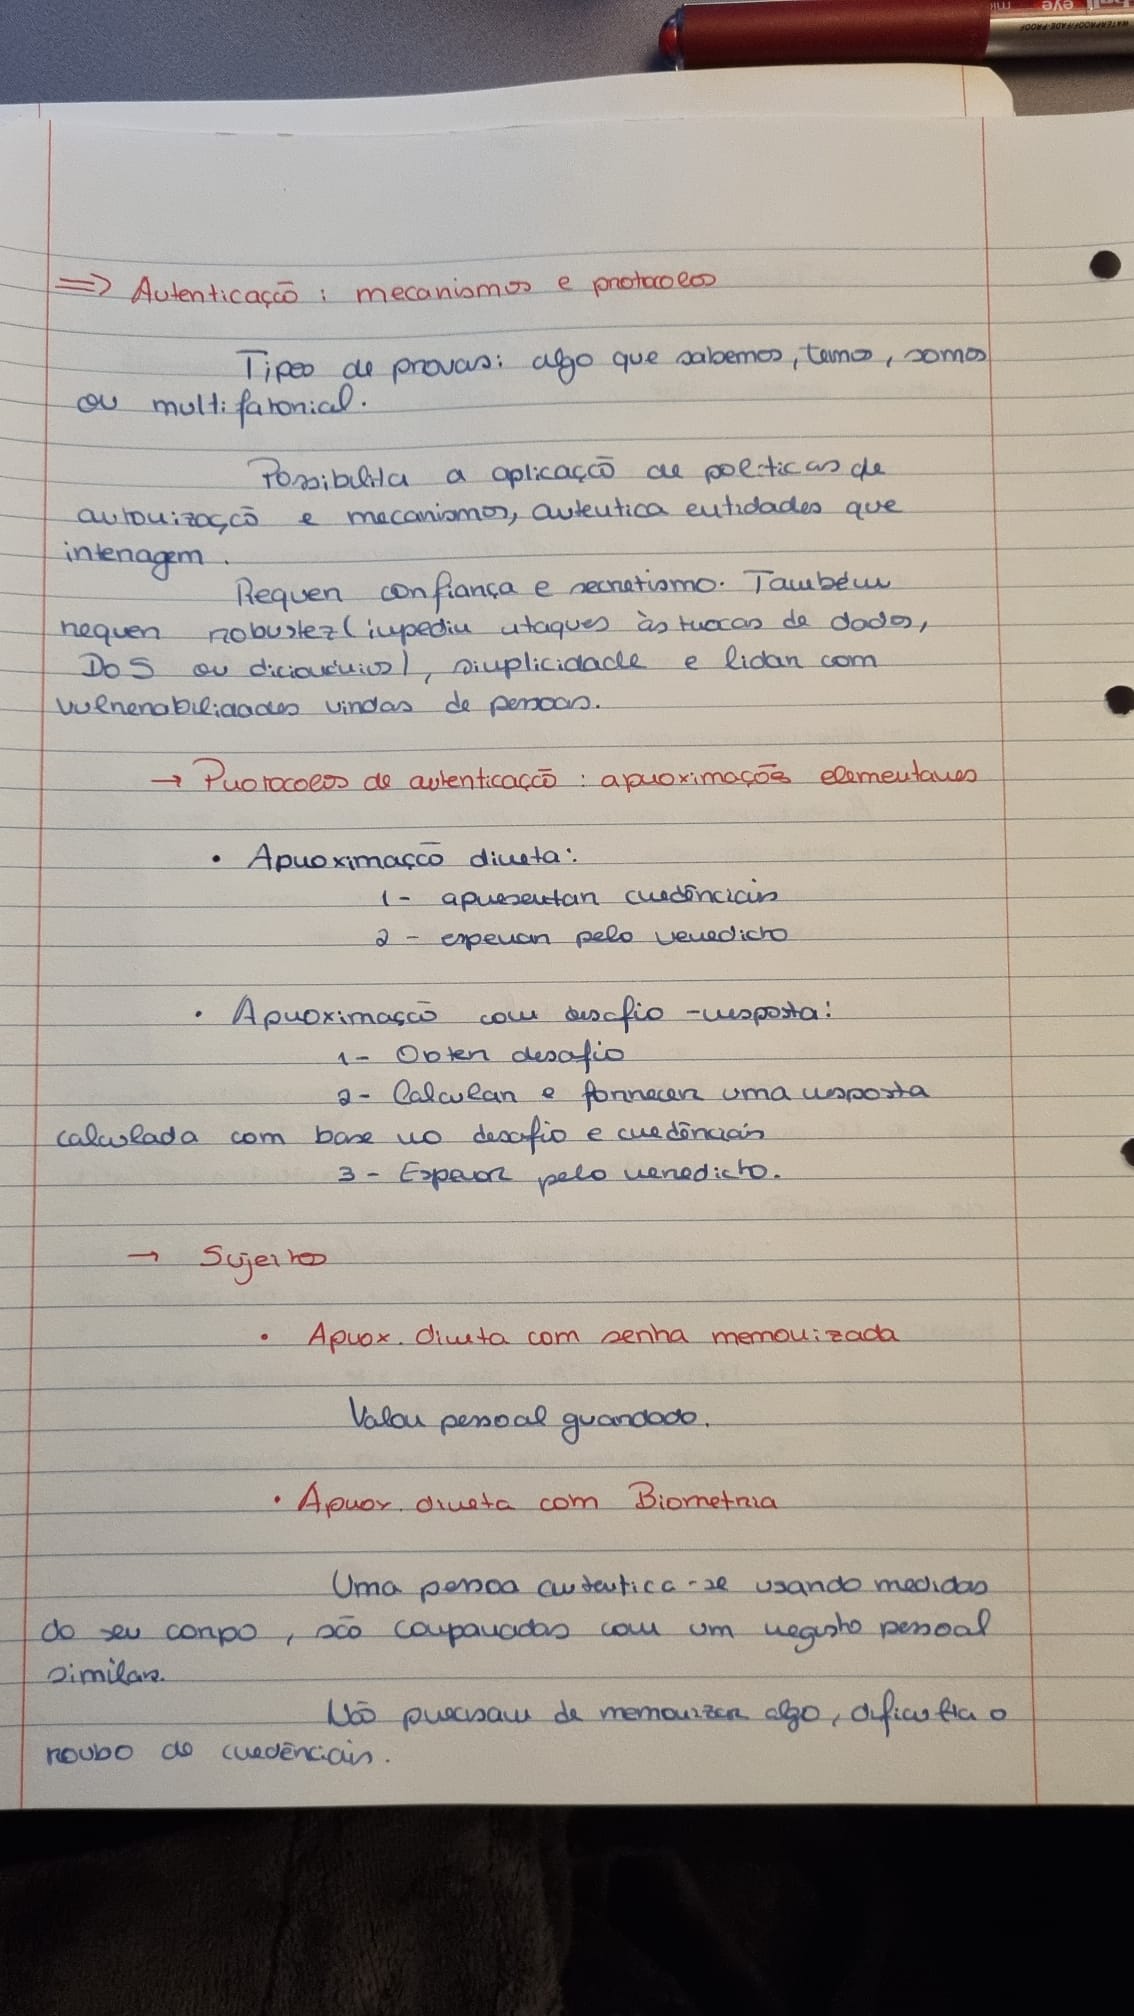 ⇒ Autenticação : mecanismos e protocolos
Tipos de provas: algo que sabemos, temos, somos
ou multifatorial.
Possibilita a aplicação de políticas de
autorização e mecanismos, autentica entidades que
interagem.
Requer confiança e secretismo. Também
requer robustez (impedir ataques às trocas de dados,
DoS ou dicionários), simplicidade e lidar com
vulnerabilidades vindas de pessoas.
→ Protocolos de autenticação : aproximações elementares
• Aproximação direta:
1- apresentar credênciais
2 - esperar pelo veredicto
• Aproximação com desafio -resposta:
1- Obter desafio
2- Calcular e fornecer uma resposta
calculada com base no desafio e credênciais
3 - Esperar pelo veredicto.
→ Sujeitos
• Aprox. direta com senha memorizada
Valor pessoal guardado.
• Aprox. direta com Biometria
Uma pessoa autentica-se usando medidas
do seu corpo, são comparadas com um registo pessoal
similar.
Não precisam de memorizar algo, dificulta o
roubo de credênciais.